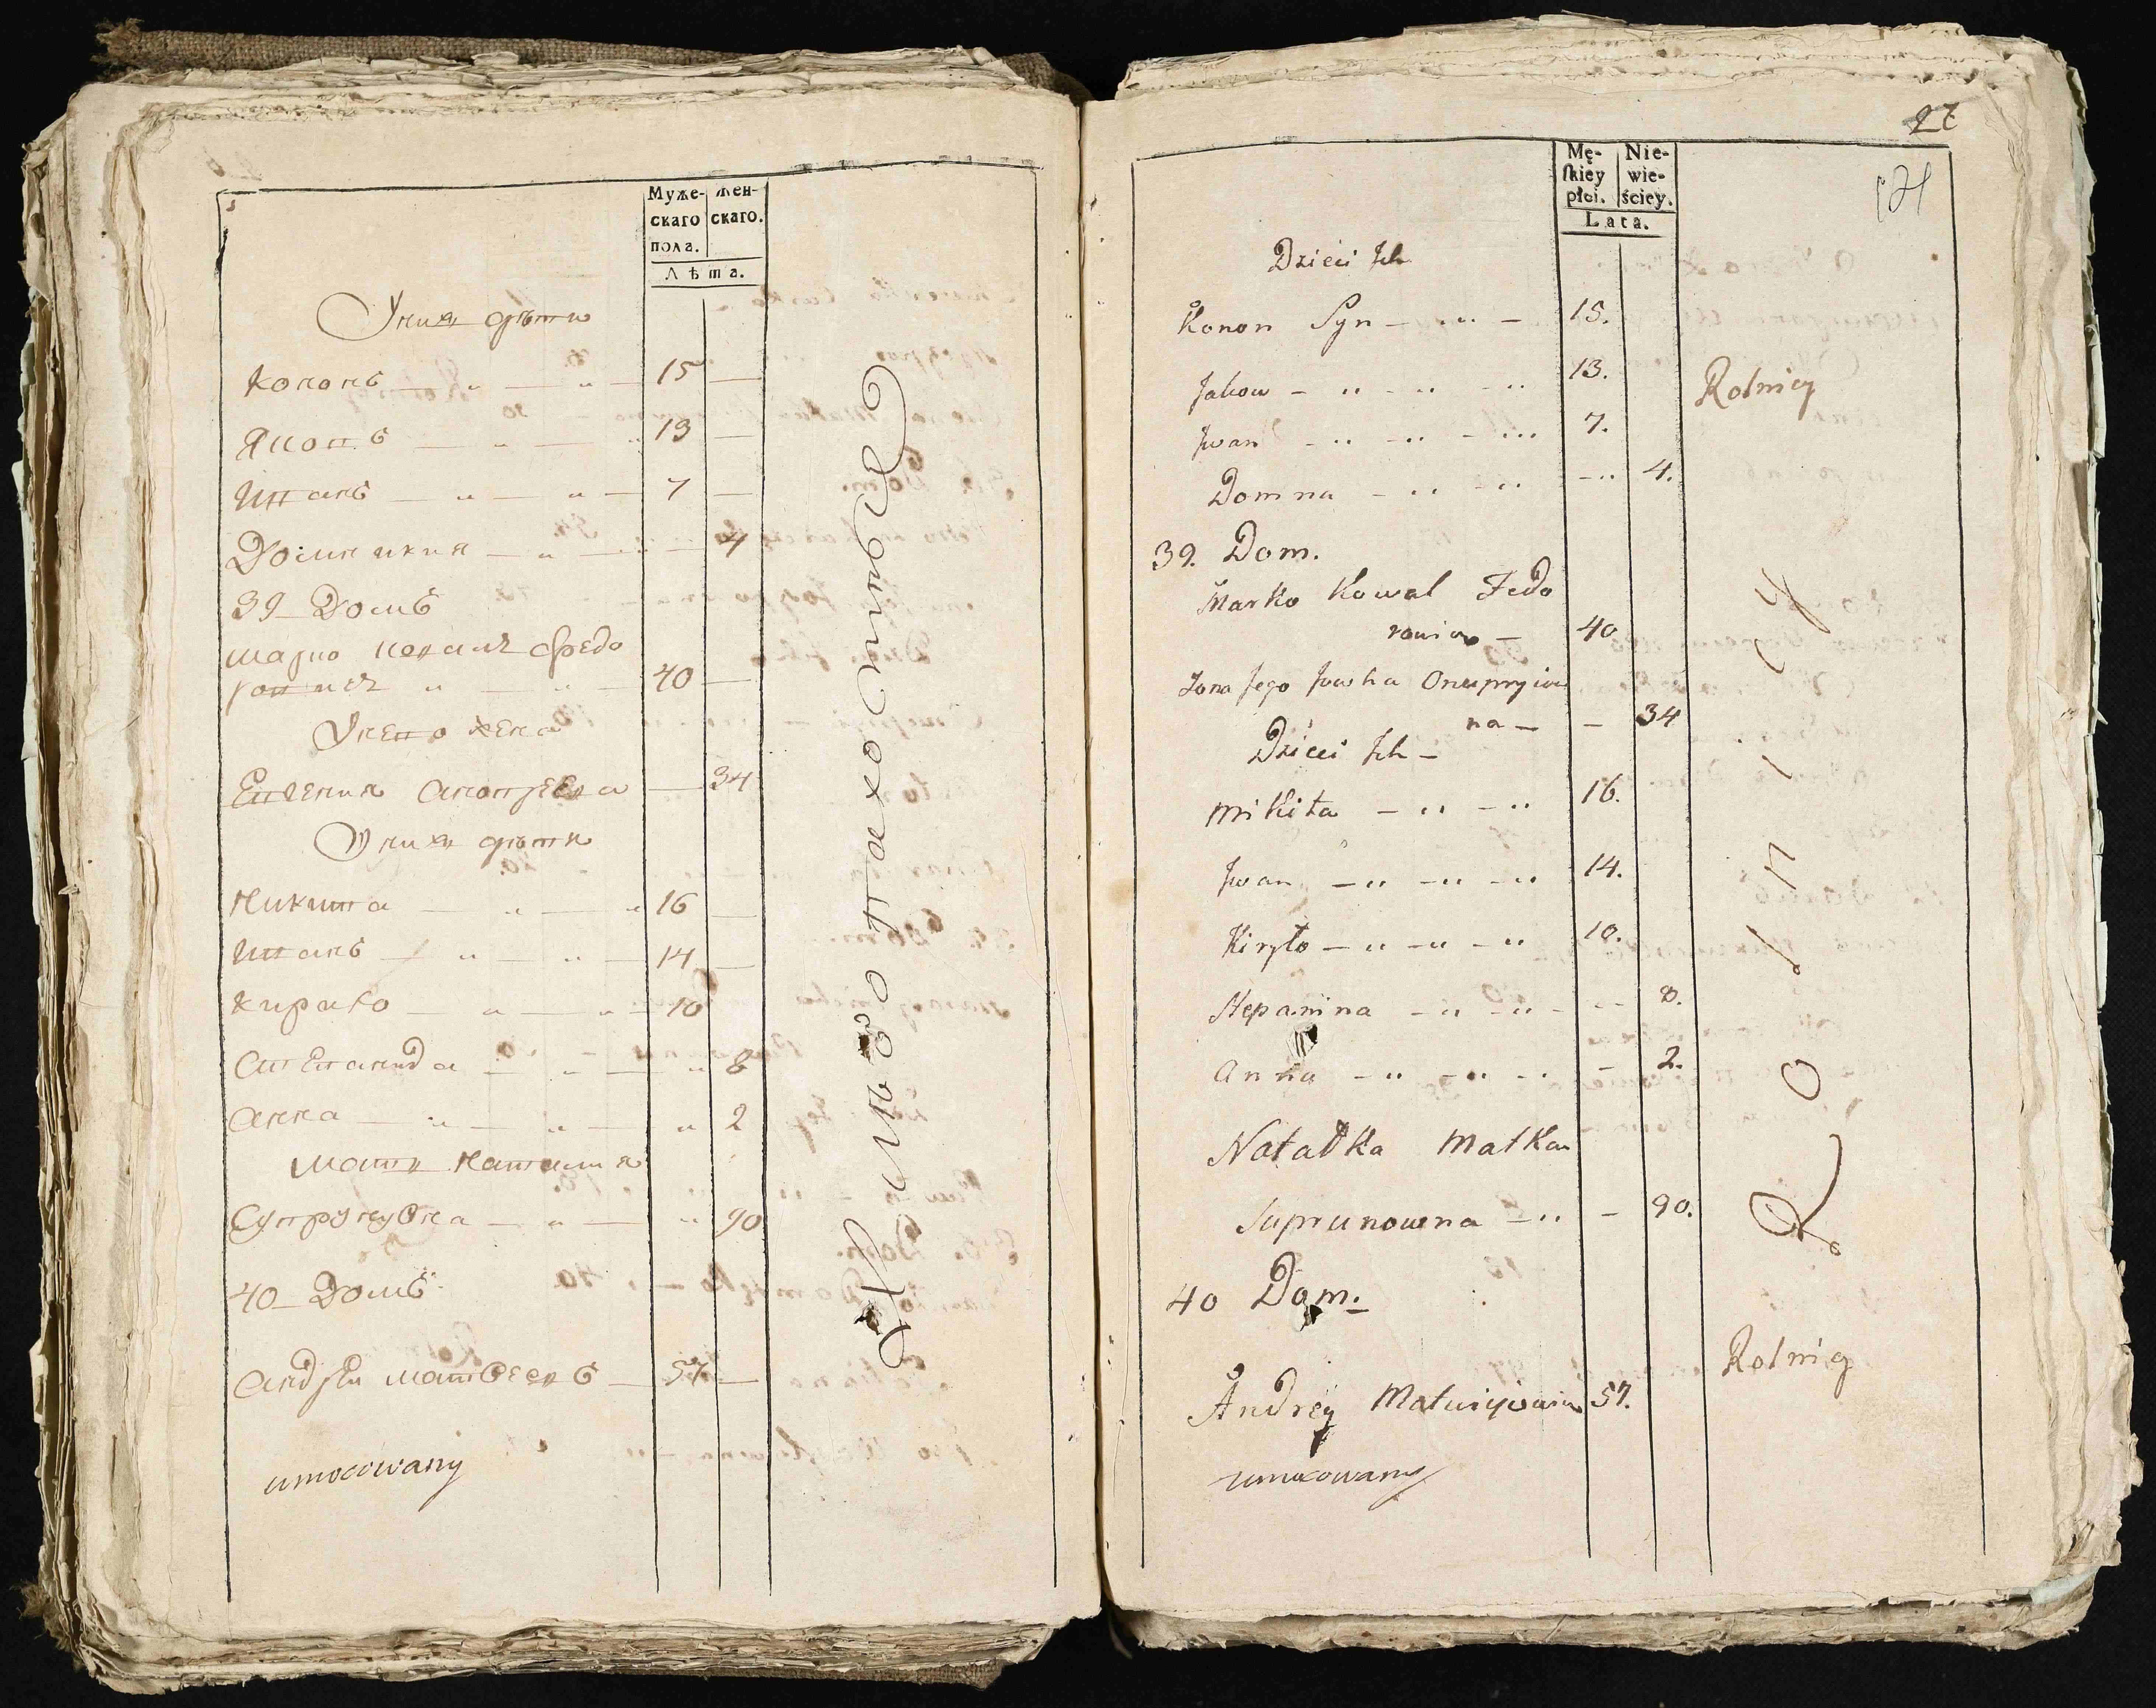 Муже-
скаго
пола.
Жен-
скаго.
Лѣта.
У нихъ дѣти
Кононъ — „ — „ — 15 —
Яковъ — „ — „ 13 —
Иванъ — „ — „ — 7 —
Домникия — „ — 4
39 Домъ
Марко Коваль Федо
ровичъ „ — „ — 40 —
У нево жена
Евгения — 34
У нихъ дѣти
Никита — „ — „ 16 —
Иванъ — „ — „ — 14 —
Кирило — „ — „ — 10
Степанида — „ — „ 8
Анна — „ — „ — „ 2
Мать Наталия
Супрунувна — „ — „ 90
40 Домъ
Андрѣи Матвеевъ — 57 —
umocowany
27
Mę-
skiey
płci.
Nie-
wie-
ściey.
Lata.
Dzieci Ich
Konon Syn — „ — 15.
Jakow — „ — „ — „ 13.
Rolnicy
Iwan — „ — „ — „ 7.
Domna — „ — „ — „ 4.
39. Dom.
Marko Kowal Fedo
rowicz — 40
Żona Jego Jewka Onupryiow
na — — 34
Dzieci Ich —
Mikita — „ — „ 16.
Iwan — „ — „ — „ 14.
Kiryło — „ — „ — „ 10.
Stepanina — „ — „ — 8.
Anna — „ — „ — „ — 2.
Natałka Matka
Suprunowna — „ — 90.
40 Dom.
Rolnicy
Andrey Matwijowicz 57.
umocowany
Rolnicy